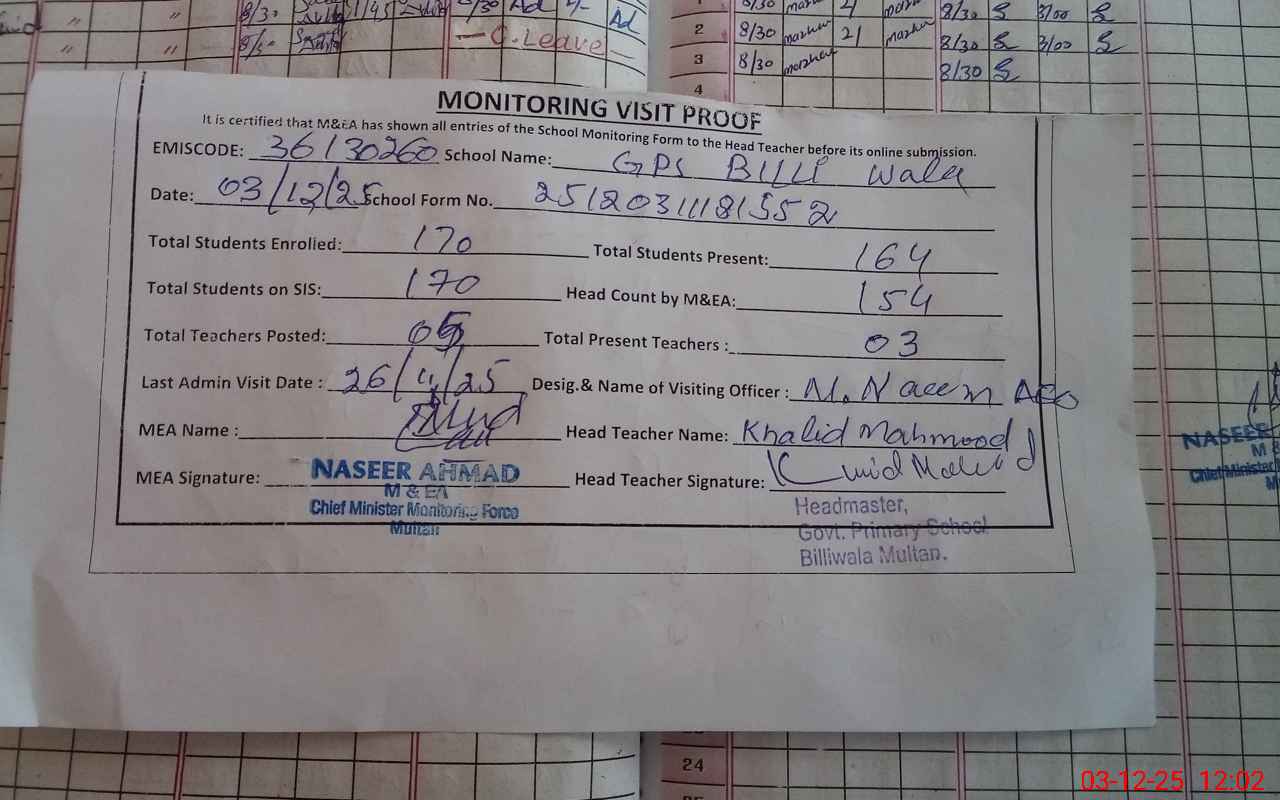 8/30
8/30
C. Leave
2 8/30 21 8/30 3/00
3 8/30 8/30
4
MONITORING VISIT PROOF
It is certified that M&EA has shown all entries of the School Monitoring Form to the Head Teacher before its online submission.
EMISCODE: 36130260 School Name: GPS Billi Wala
Date: 03/12/25 School Form No. 25120311181552
Total Students Enrolled: 170 Total Students Present: 164
Total Students on SIS: 170 Head Count by M&EA: 154
Total Teachers Posted: 05 Total Present Teachers : 03
Last Admin Visit Date : 26/11/25 Desig.& Name of Visiting Officer : M. Naeem AEO
MEA Name : Head Teacher Name: Khalid Mahmood
MEA Signature: Head Teacher Signature:
NASEER AHMAD
M & EA
Chief Minister Monitoring Force
Multan
Headmaster,
Govt. Primary School
Billiwala Multan.
NASEER
Chief Minister
24
03-12-25 12:02